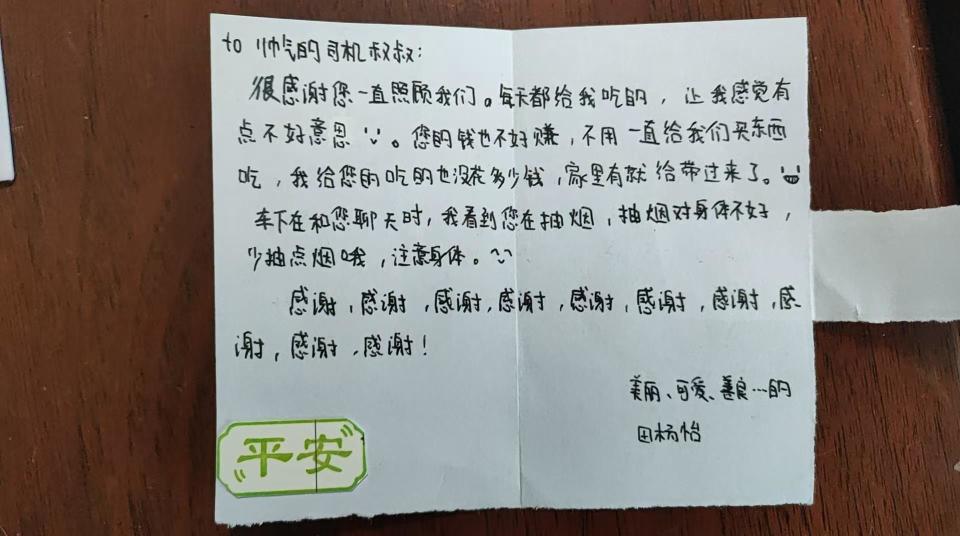 to 帅气的司机叔叔：
很感谢您一直照顾我们。每天都给我吃的，让我感觉有
点不好意思。您的钱也不好赚，不用一直给我们买东西
吃，我给您的吃的也没花多少钱，家里有就给带过来了。
车下在和您聊天时，我看到您在抽烟，抽烟对身体不好，
少抽点烟哦，注意身体。
感谢，感谢，感谢，感谢，感谢，感谢，感谢，感
谢，感谢，感谢！
美丽、可爱、善良…的
田杨怡
平安